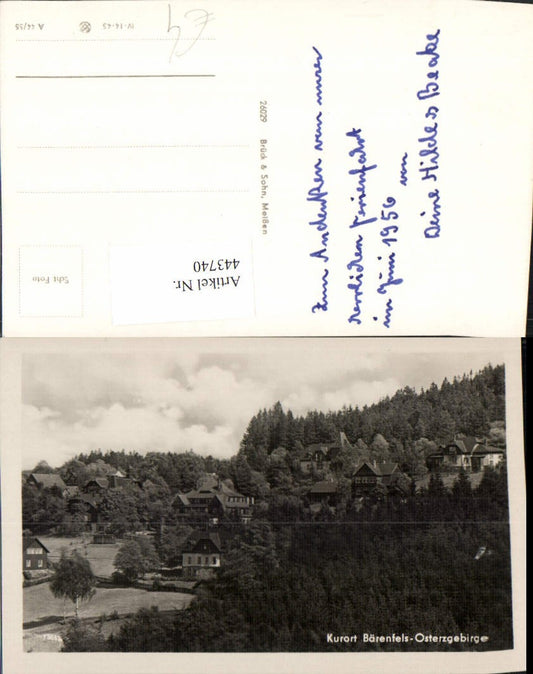 A 44/55 IV-14-45
26029 Brück & Sohn, Meißen
Scht Foto
Artikel Nr.
443740
Zum Andenken von unser
herrlichen Ferienfahrt
im Juni 1956 von
Deine Hildes Beate
Kurort Bärenfels-Osterzgebirge